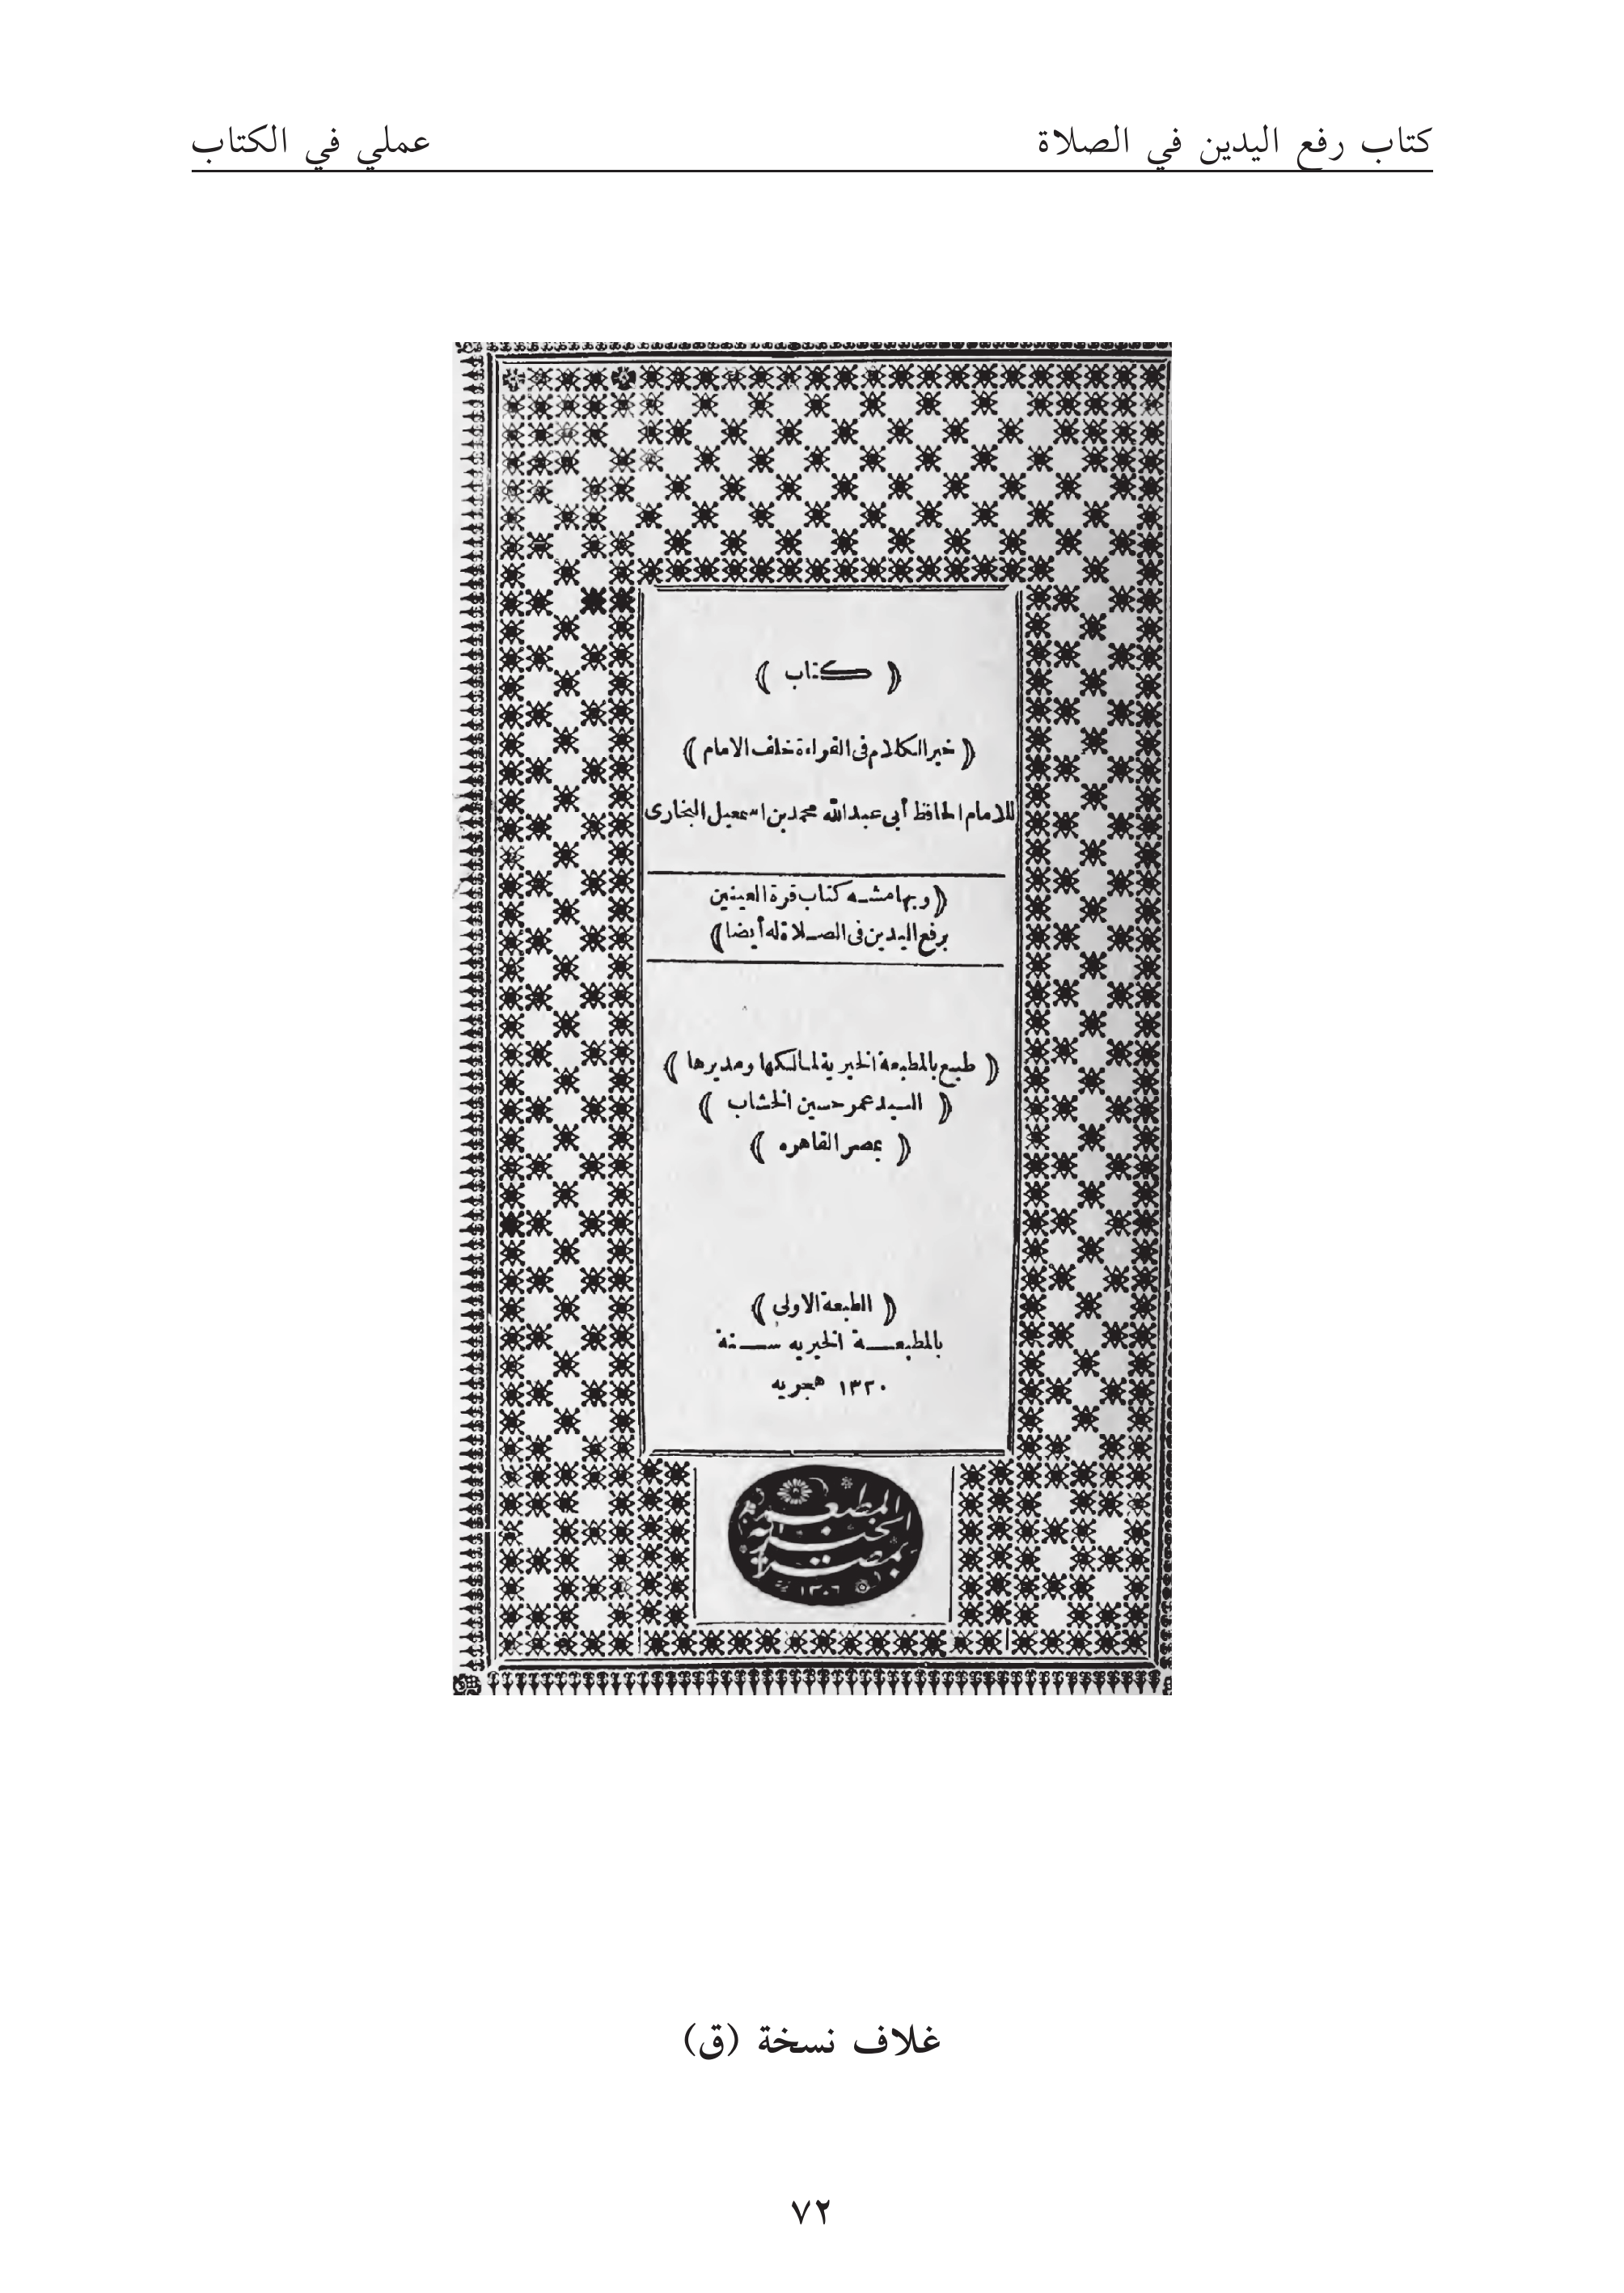 كتاب رفع اليدين في الصلاة
عملي في الكتاب
﴿ كتاب ﴾
﴿ خير الكلام فى القراءة خلف الامام ﴾
للامام الحافظ أبى عبد الله محمد بن اسمعيل البخارى
﴿ وبهامشه كتاب قرة العينين
برفع اليدين فى الصلاة له أيضا ﴾
﴿ طبع بالمطبعة الخيرية لمالكها ومديرها ﴾
﴿ السيد عمر حسين الخشاب ﴾
﴿ بمصر القاهره ﴾
﴿ الطبعة الاولى ﴾
بالمطبعة الخيريه سنة
١٣٢٠ هجريه
المطبعه
الخيريه
بمصر
١٣٠٦
غلاف نسخة (ق)
٧٢